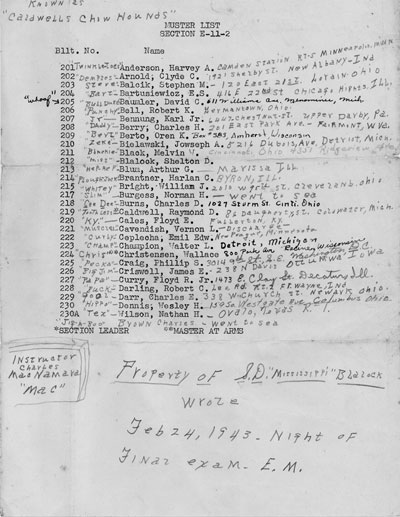 Known as
"Caldwells Chow Hounds"
MUSTER LIST
SECTION E-11-2
Bllt. No. Name
201 Anderson, Harvey A. Camden Station RT-5 Minneapolis, Minn
202 Arnold, Clyde C. 1921 Shelby St. New Albany-Ind
203 Steve Balcik, Stephen M. - 120 East 21st St. Lorain Ohio
204 Bart- Bartusiewicz, E.S. 416 E 22nd St Chicago Heights, Ill,
*205 Baumler, David C. 611 Williams Ave, Menominee, Mich
206 Bell, Robert K. Ohio
207 Jr- Bennung, Karl Jr. Chestnut St. Upper Darby, Pa.
208 "Daddy" Berry, Charles H. 201 East Park Ave - Fairmont, W.Va.
209 "Bert" Berto, Oren K. Box 583, Amherst, Wisconsin
210 Zeke- Bielawski, Jowseph A. 5216 Dubois, Ave, Detroit, Mich.
211 Blackie Block, Melvin W. Cincinnati, Ohio
212 "Miss" Blalock, Shelton D.
213 Blum, Arthur G. Marissa Ill
214 Brantner, Harlan C. Byron, Ill
215 "Whitey" Bright, William J. 2010 W. St. Cleveland, Ohio
217 Slim Burgess, Norman H. - went to sea
218 Gee Dee- Burns, Charles D. 1027 Sturm St. Cinti. Ohio
219 Caldwell, Raymond D. 86 Danphory St, Coldwater, Mich.
220 "Ky." Cales, Floyd E. Fullerton, Ky.
221 Cavendish, Vernon L. - Discharge
222 "Curly" Cepleoha, Emil Edw. New Prague, Minnesota
223 "Champ" Champion, Walter L. Detroit, Michigan
224 "Chris" Christensen, Wallace 800 Park Ave Racine, Wisconsin
225 Craig, Phillip S. 3014 9th St. S.E. Washington
226 "Big Jim" Criswell, James E. - 238 N Davis Ottumwa Iowa
227 "Papa" Curry, Floyd R. Jr. 1473 E. Clay St. Decatur, Ill.
228 "Duck" Darling, Robert C. Lee Rd. Ft. Wayne, Ind
229 Darr, Charles E. 338 W Church St. Newark, Ohio.
230 "Hippo" Dennis, Wesley H. 1595 Westgate Ave-Columbus Ohio
230A "Tex" Wilson, Nathan H. - Ovalo, Texas R. 1.
Brown Charles - went to sea
*SECTION LEADER **MASTER AT ARMS
Instructor
Charles
MacNamara
"Mac"
Property of S.D. "Mississippi" Blalock
Wrote
Feb 24, 1943. Night of
Final exam. E.M.